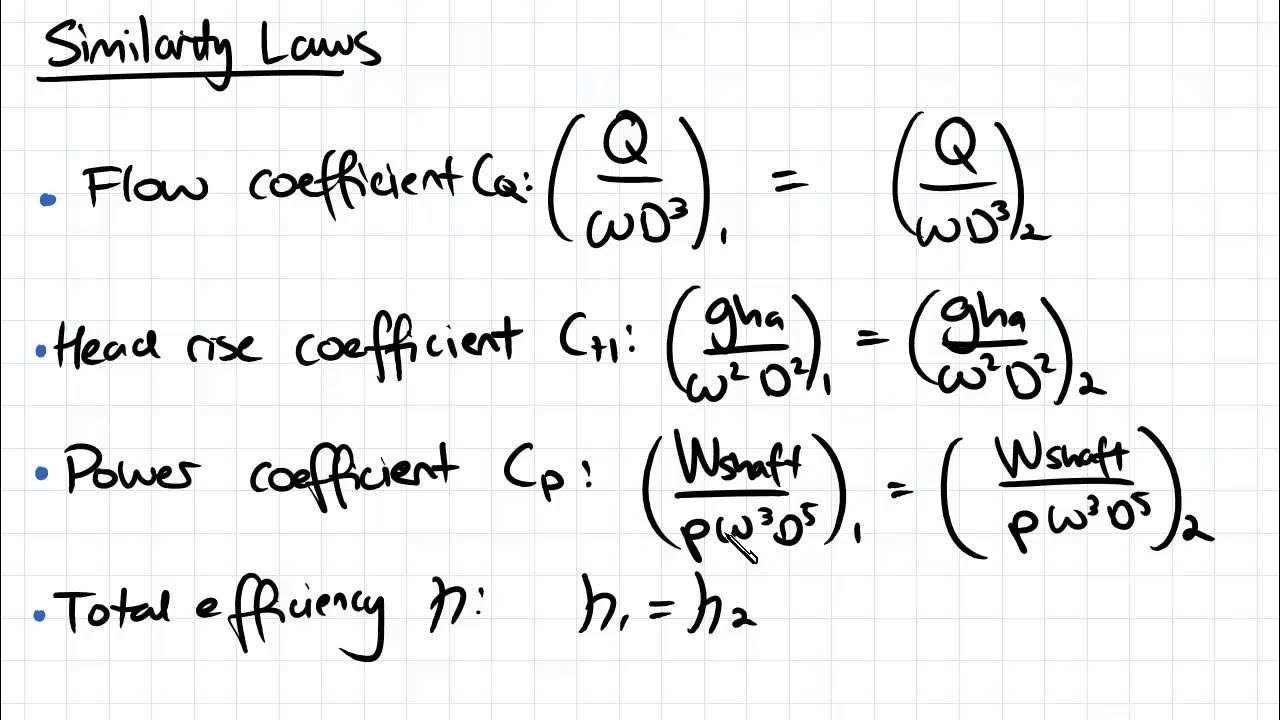 Similarity Laws
• Flow coefficient CQ: (Q / ωD³)₁ = (Q / ωD³)₂
• Head rise coefficient CH: (gha / ω²D²)₁ = (gha / ω²D²)₂
• Power coefficient Cp: (Wshaft / ρω³D⁵)₁ = (Wshaft / ρω³D⁵)₂
• Total efficiency η: η₁ = η₂